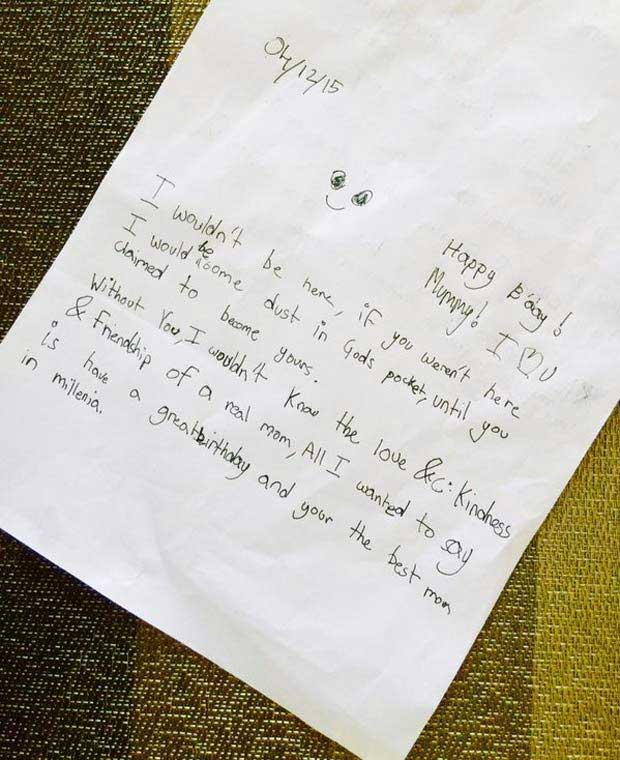 04/12/15
Happy B'day!
Mummy! I ♡ U
I wouldn't be here, if you weren't here
I would be some dust in Gods pocket, until you
claimed to become yours.
Without You, I wouldn't Know the love & Kindness
& Friendship of a real mom, All I wanted to say
is have a great birthday and your the best mom
in millenia.